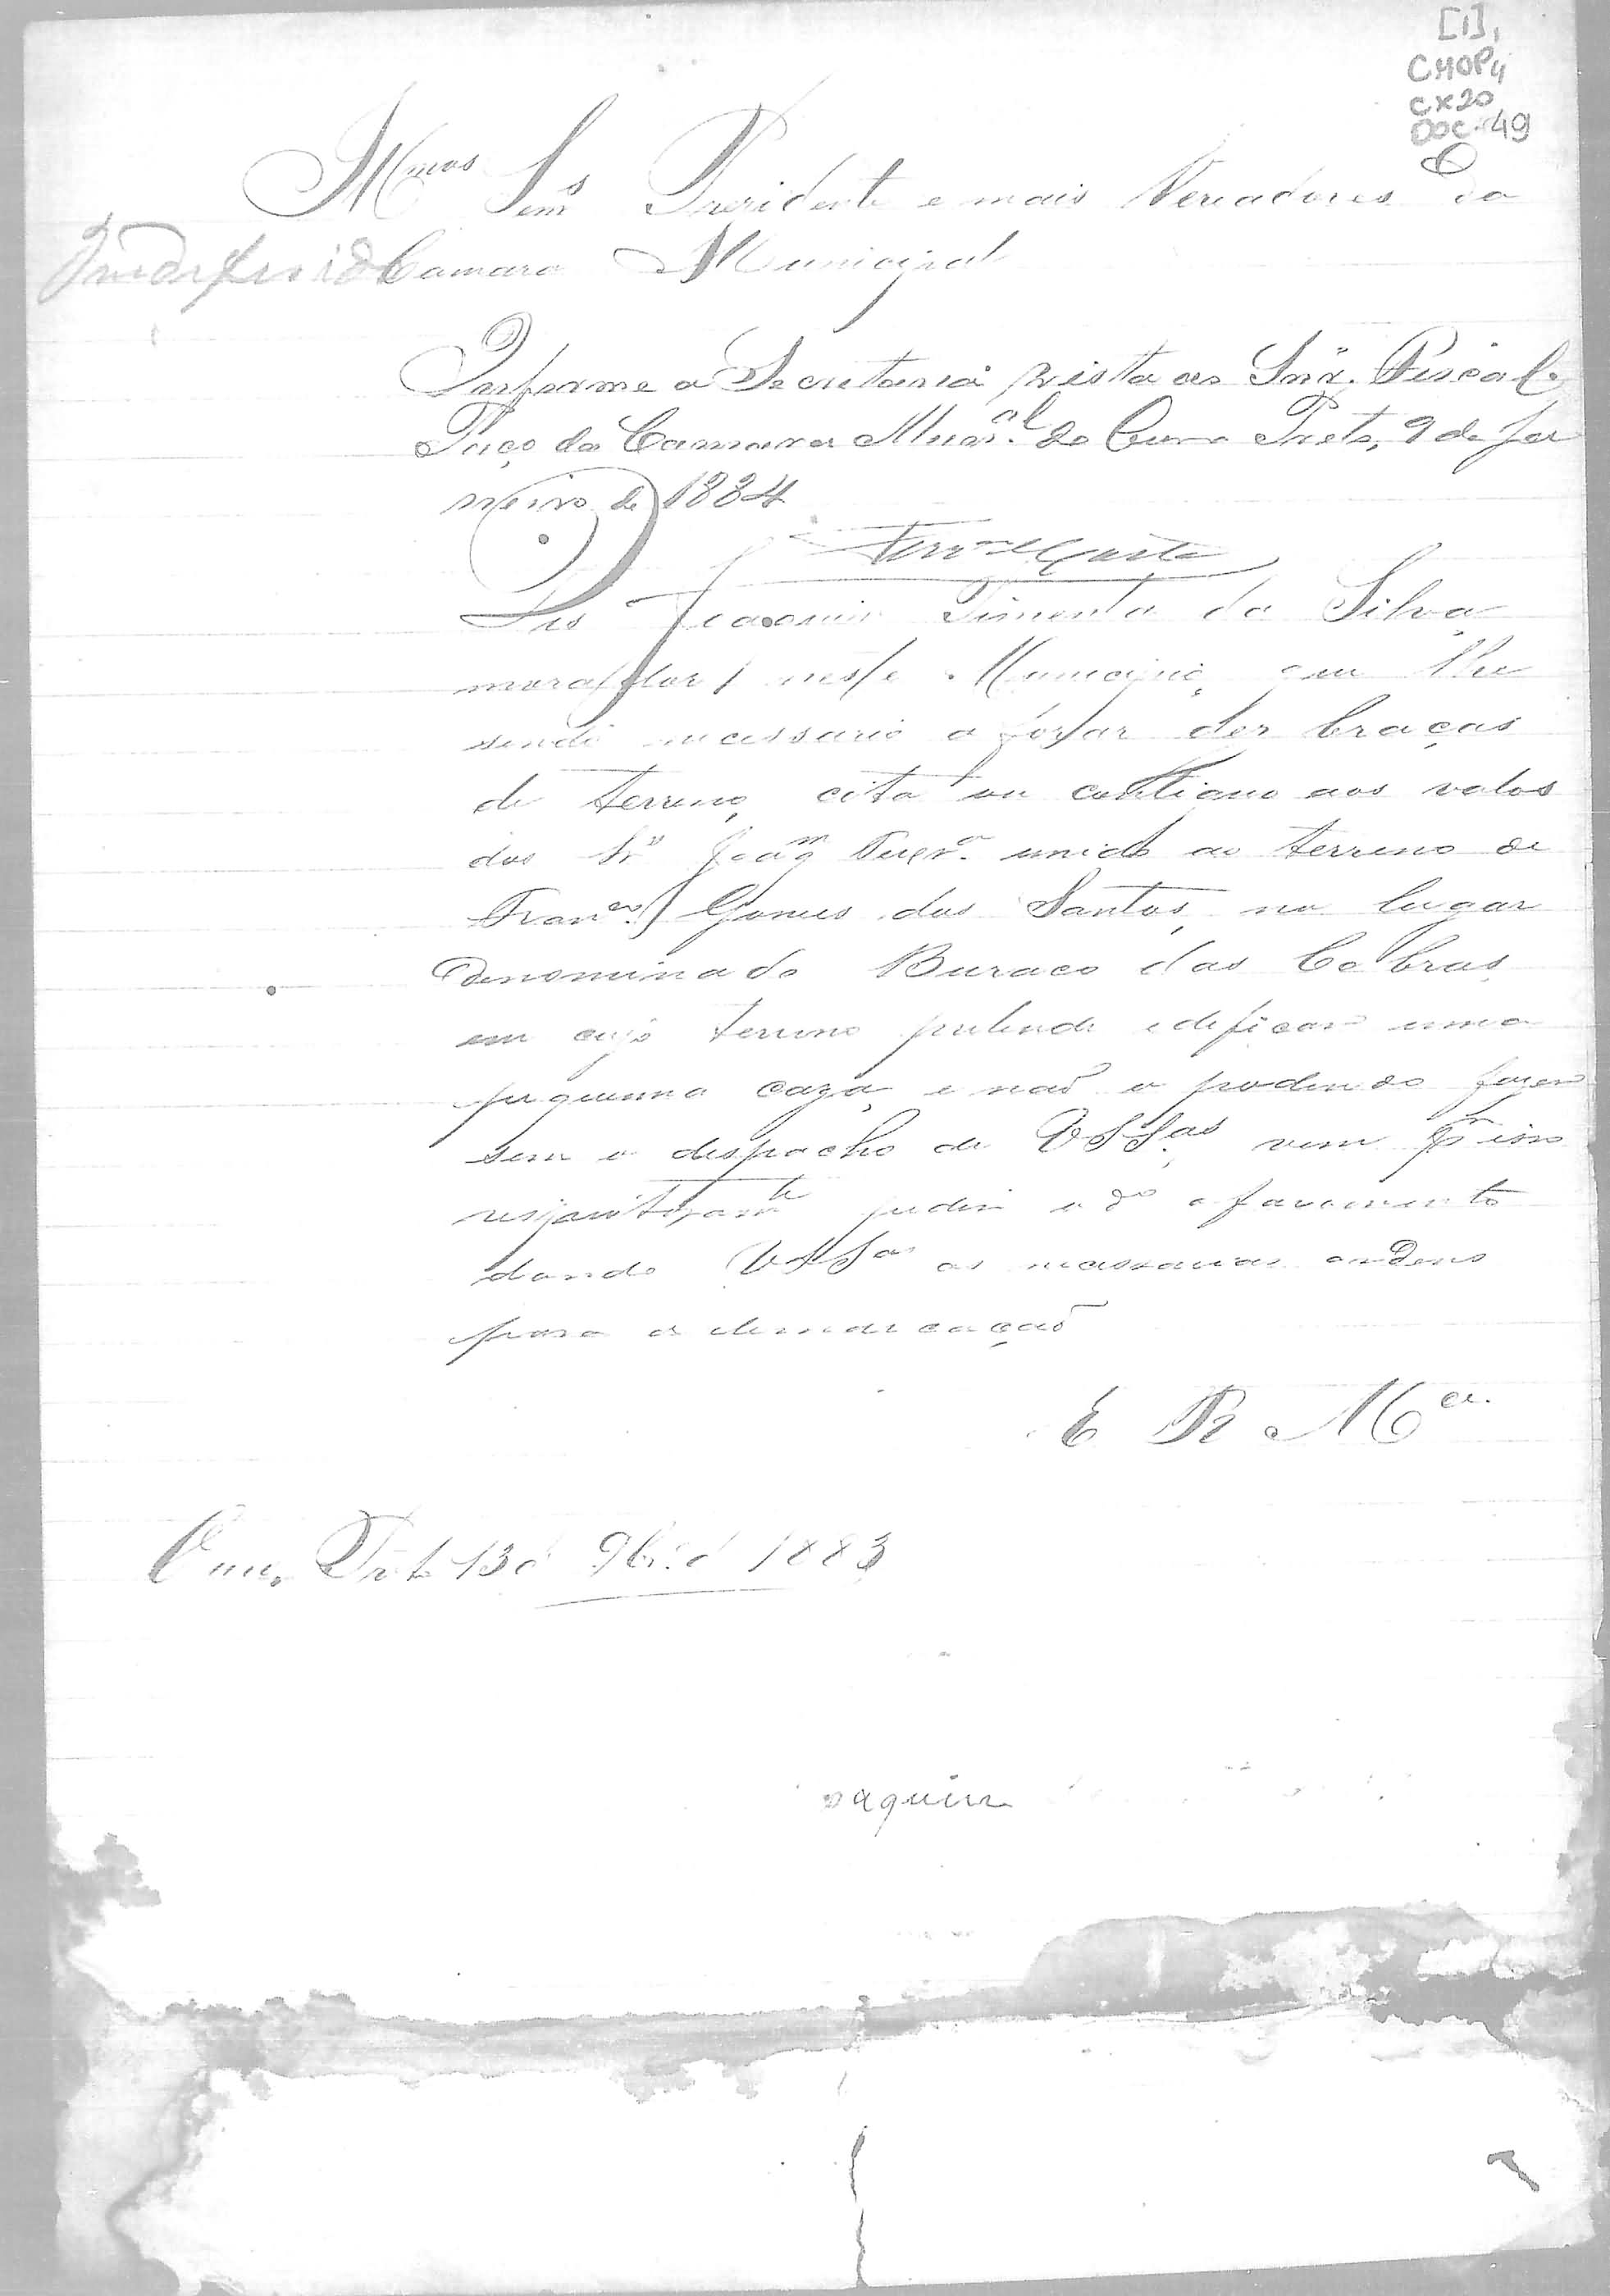 [1],
CMOP,
CX20
DOC. 49
Illmos Snrs Prezidente e mais Vereadores da
Indeferido
Camara Municipal
Informe a Secretaria vista ao Snr. Fiscal.
Paço da Camara Munal. de Ouro Preto, 9 de Ja
neiro de 1884
Diz Joaquim Pimenta da Silva
morador neste Municipio, que lhe
sendo necessario aforar dez braças
de terreno, cito ou contiguo aos valos
dos Joaqm unido ao terreno de
Franco. Gomes dos Santos, no lugar
denominado Buraco das Cobras,
em cujo terreno pretende edificar uma
pequenna caza, e não o podendo fazer
sem o despacho de VSSas, vem pr isso
respeitozamte pedir o do aforamento
dando VSSas as necessarias ordens
para a demarcação
E R Mce.
Ouro Preto 13 d 9br.o d 1883
oaquim